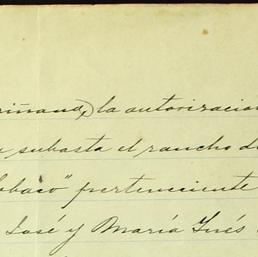 la autorizacion
subasta el rancho de
obaco" perteneciente
José y María Inés